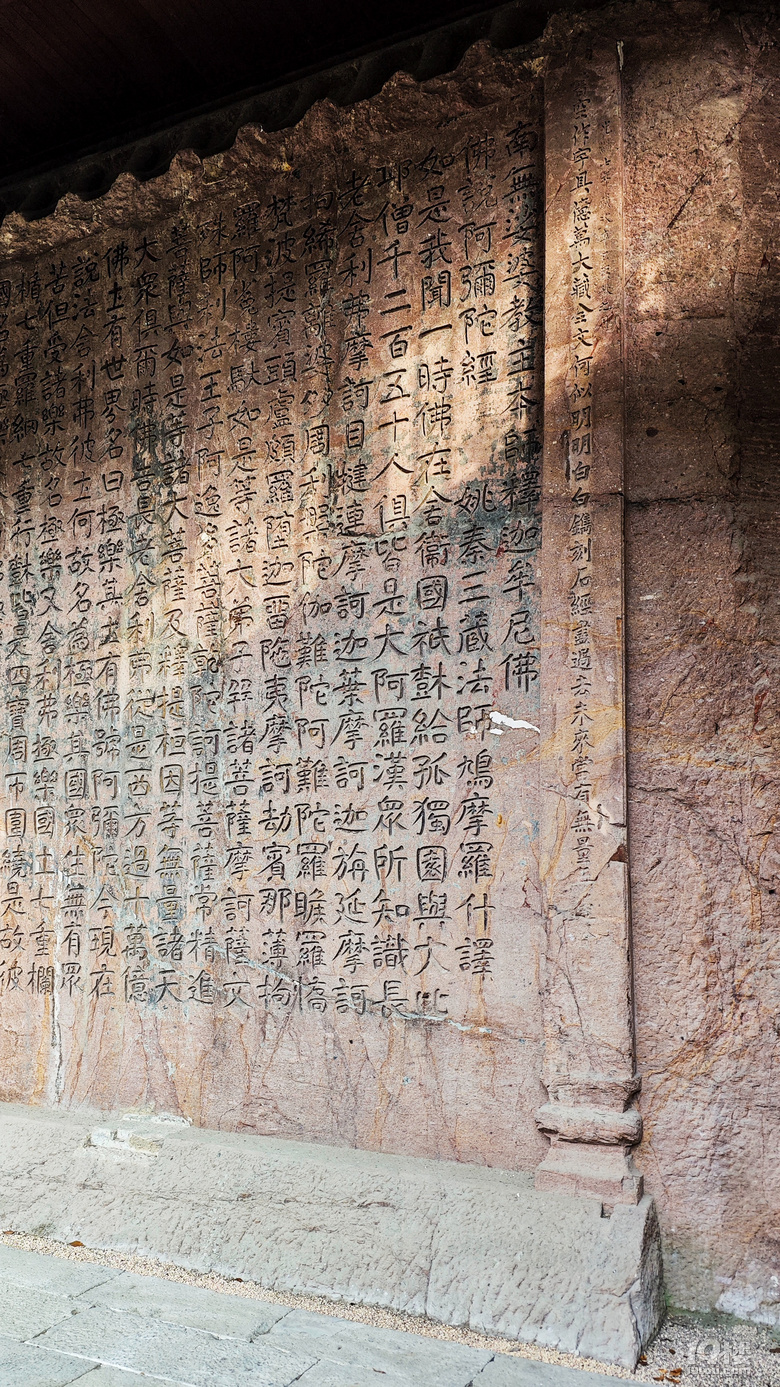 空作字具億萬大藏全文何似明明白白鐫刻石經畫過去未來嘗有無量
南無娑婆教主本師釋迦牟尼佛
佛說阿彌陀經 姚秦三藏法師鳩摩羅什譯
如是我聞一時佛在舍衞國祇樹給孤獨園與大比
邱僧千二百五十人俱皆是大阿羅漢眾所知識長
老舍利弗摩訶目犍連摩訶迦葉摩訶迦旃延摩訶
拘絺羅離婆多周利槃陀伽難陀阿難陀羅睺羅憍
梵波提賓頭盧頗羅墮迦畱陀夷摩訶劫賓那薄拘
羅阿㝹樓馱如是等諸大弟子并諸菩薩摩訶薩文
殊師利法王子阿逸多菩薩乾陀訶提菩薩常精進
菩薩與如是等諸大菩薩及釋提桓因等無量諸天
大眾俱爾時佛告長老舍利弗從是西方過十萬億
佛土有世界名曰極樂其土有佛號阿彌陀今現在
說法舍利弗彼土何故名為極樂其國眾生無有眾
苦但受諸樂故名極樂又舍利弗極樂國土七重欄
楯七重羅網七重行樹皆是四寶周帀圍繞是故彼
國名為極樂
10樓
19lou.com